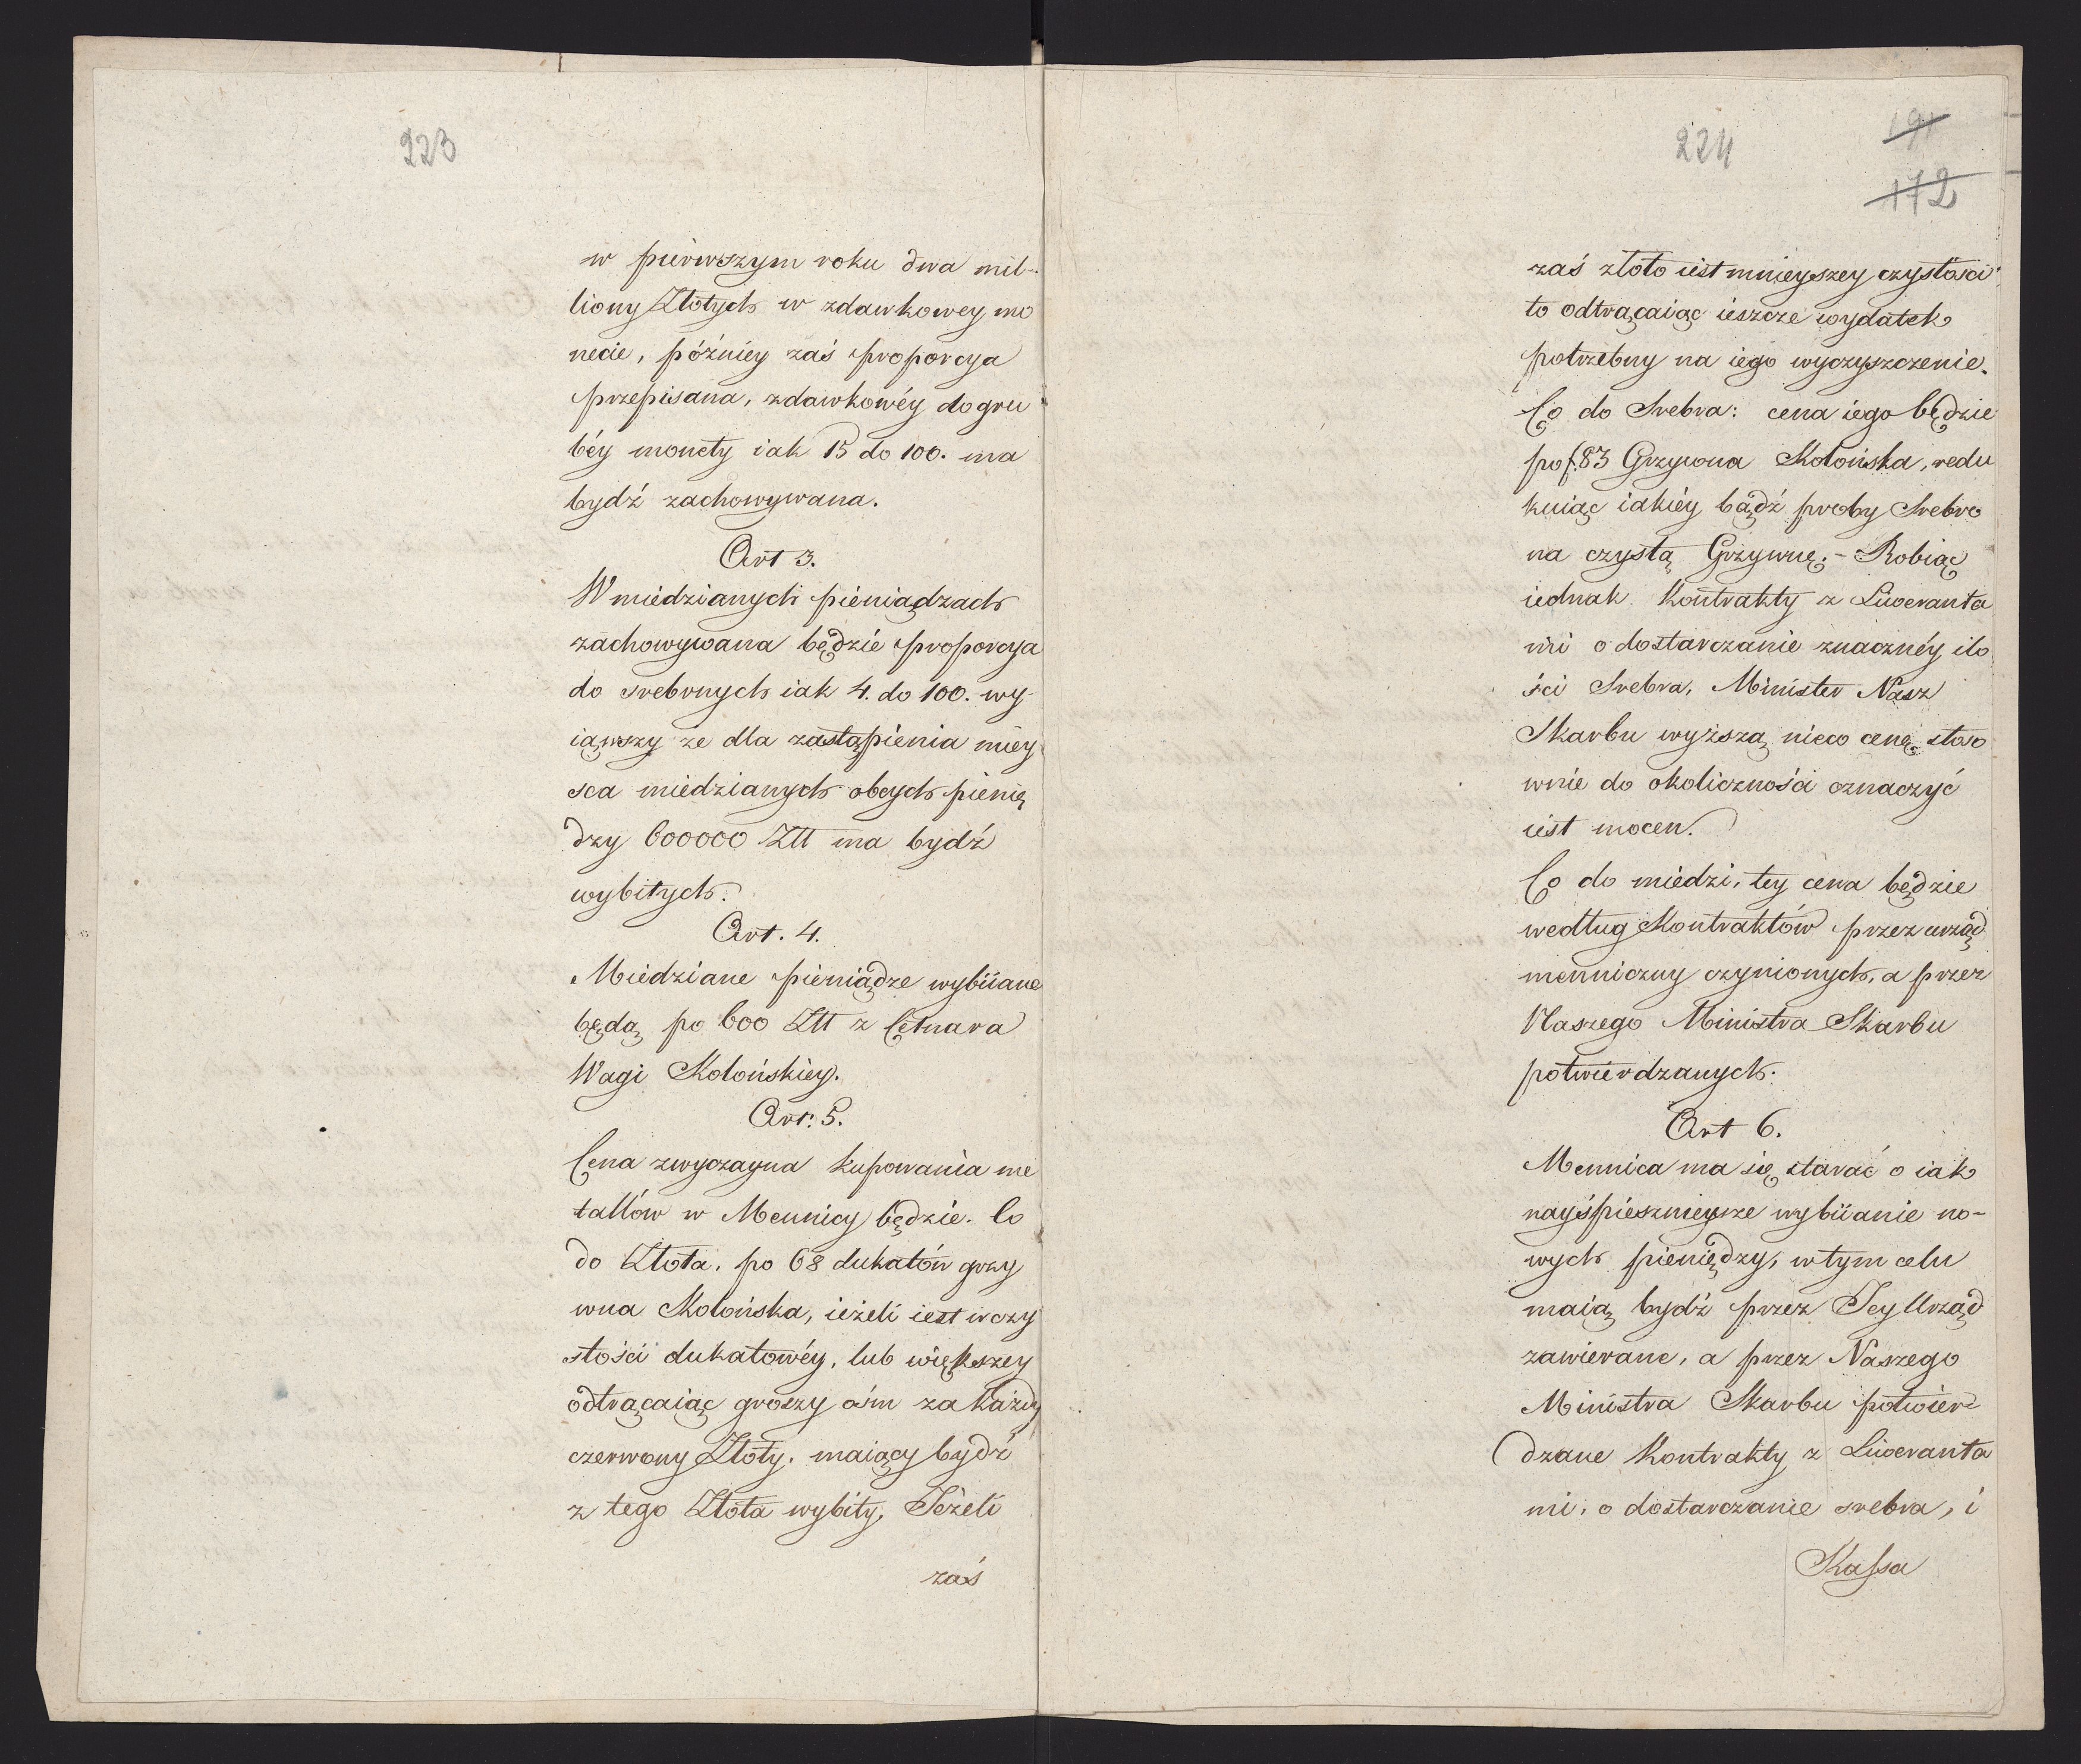 223
w pierwszym roku dwa mil-
liony Złotych w zdawkowey mo
necie, późniéy zaś proporcya
przepisana, zdawkowéy do gru
béy monety iak 15 do 100. ma
bydź zachowywana.
Art 3.
W miedzianych pieniądzach
zachowywana będzie proporcya
do srebrnych iak 4. do 100. wy-
iąwszy że dla zastąpienia miey
sca miedzianych obcych pienię
dzy 600000 Złł ma bydź
wybitych.
Art. 4.
Miedziane pieniądze wybiiane
będą po 600 Złł z Cetnara
Wagi Kolońskiey.
Art. 5.
Cena zwyczayna kupowania me
tallów w Mennicy będzie. Co
do Złota, po 68 dukatów grzy
wna Kolońska, ieżeli iest w czy
stości dukatowéy, lub większey
odtrącaiąc groszy ośm za każdy
czerwony Złoty, maiący bydź
z tego Złota wybity. Jeżeli
zaś
224
191
172
zaś złoto iest mnieyszey czystości
to odtrącaiąc ieszcze wydatek
potrzebny na iego wyczyszczenie.
Co do Srebra: cena iego będzie
po f. 83 Grzywna Kolońska, redu
kuiąc iakiéy bądź proby Srebro
na czystą Grzywnę. - Robiąc
iednak Kontrakty z Liweranta
mi o dostarczanie znacznéy ilo
ści Srebra, Minister Nasz
Skarbu wyższą nieco cenę stoso
wnie do okoliczności oznaczyć
iest mocen.
Co do miedzi, tey cena będzie
według Kontraktów przez urząd
menniczny czynionych, a przez
Naszego Ministra Skarbu
potwierdzanych.
Art 6.
Mennica ma się starać o iak
nayśpiesznieysze wybiianie no-
wych pieniędzy, w tym celu
maią bydź przez Jey Urząd
zawierane, a przez Naszego
Ministra Skarbu potwier
dzane Kontrakty z Liweranta
mi, o dostarczanie srebra, i
Kassa